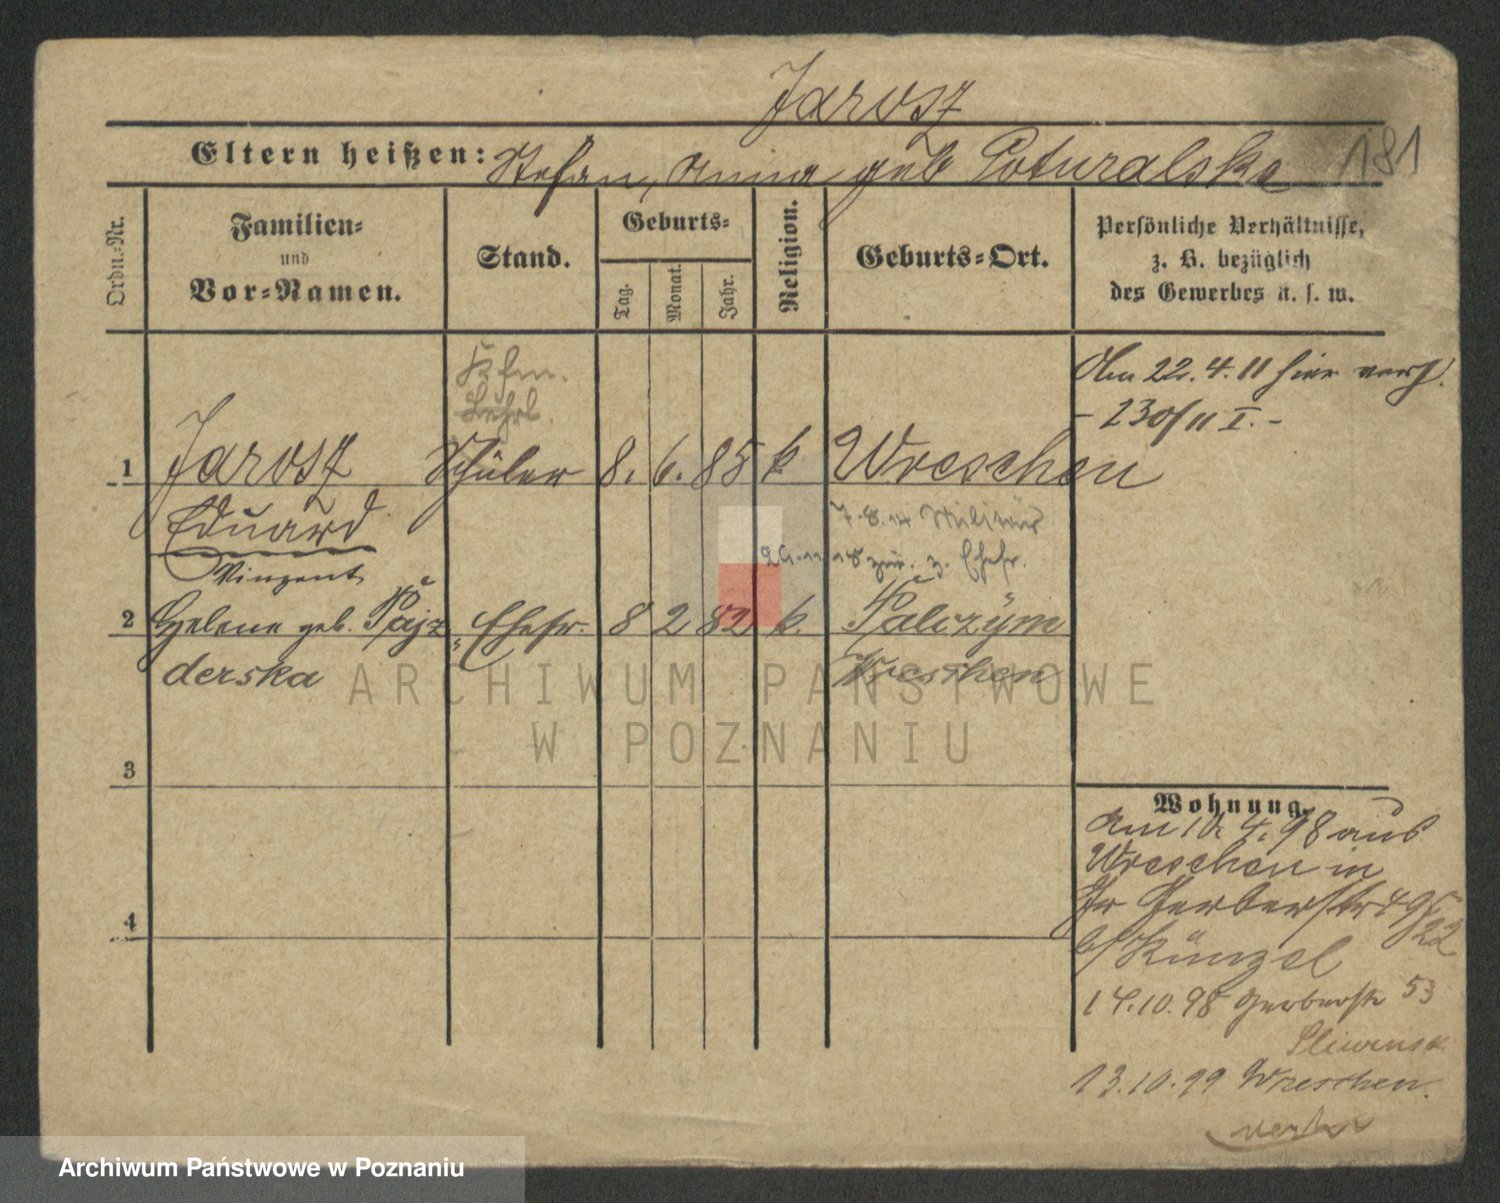 Jarosz
Eltern heißen: Stefan, Anna geb Poturalska
181
Ordn.-Nr.
Familien-
und
Vor-Namen.
Stand.
Geburts-
Tag.
Monat.
Jahr.
Religion.
Geburts-Ort.
Persönliche Verhältnisse,
z. B. bezüglich
des Gewerbes u. s. w.
Am 22.4.11 hier verz.
- 230/11 I. -
1 Jarosz Schüler 8. 6. 85 k Wreschen
Eduard
7.8.14 Militär
Vinzent
zur. z. Ehefr.
2 Helene geb. Pajz Ehefr. 8 2 82 k. Palczyn
derska Wreschen
ARCHIWUM PAŃSTWOWE
W POZNANIU
3
4
Wohnung.
am 10. 4. 98 aus
Wreschen in
Gerberstr
22
b/ Künzel
14.10.98 Gerberstr 53
13.10.99 Wreschen.
Archiwum Państwowe w Poznaniu